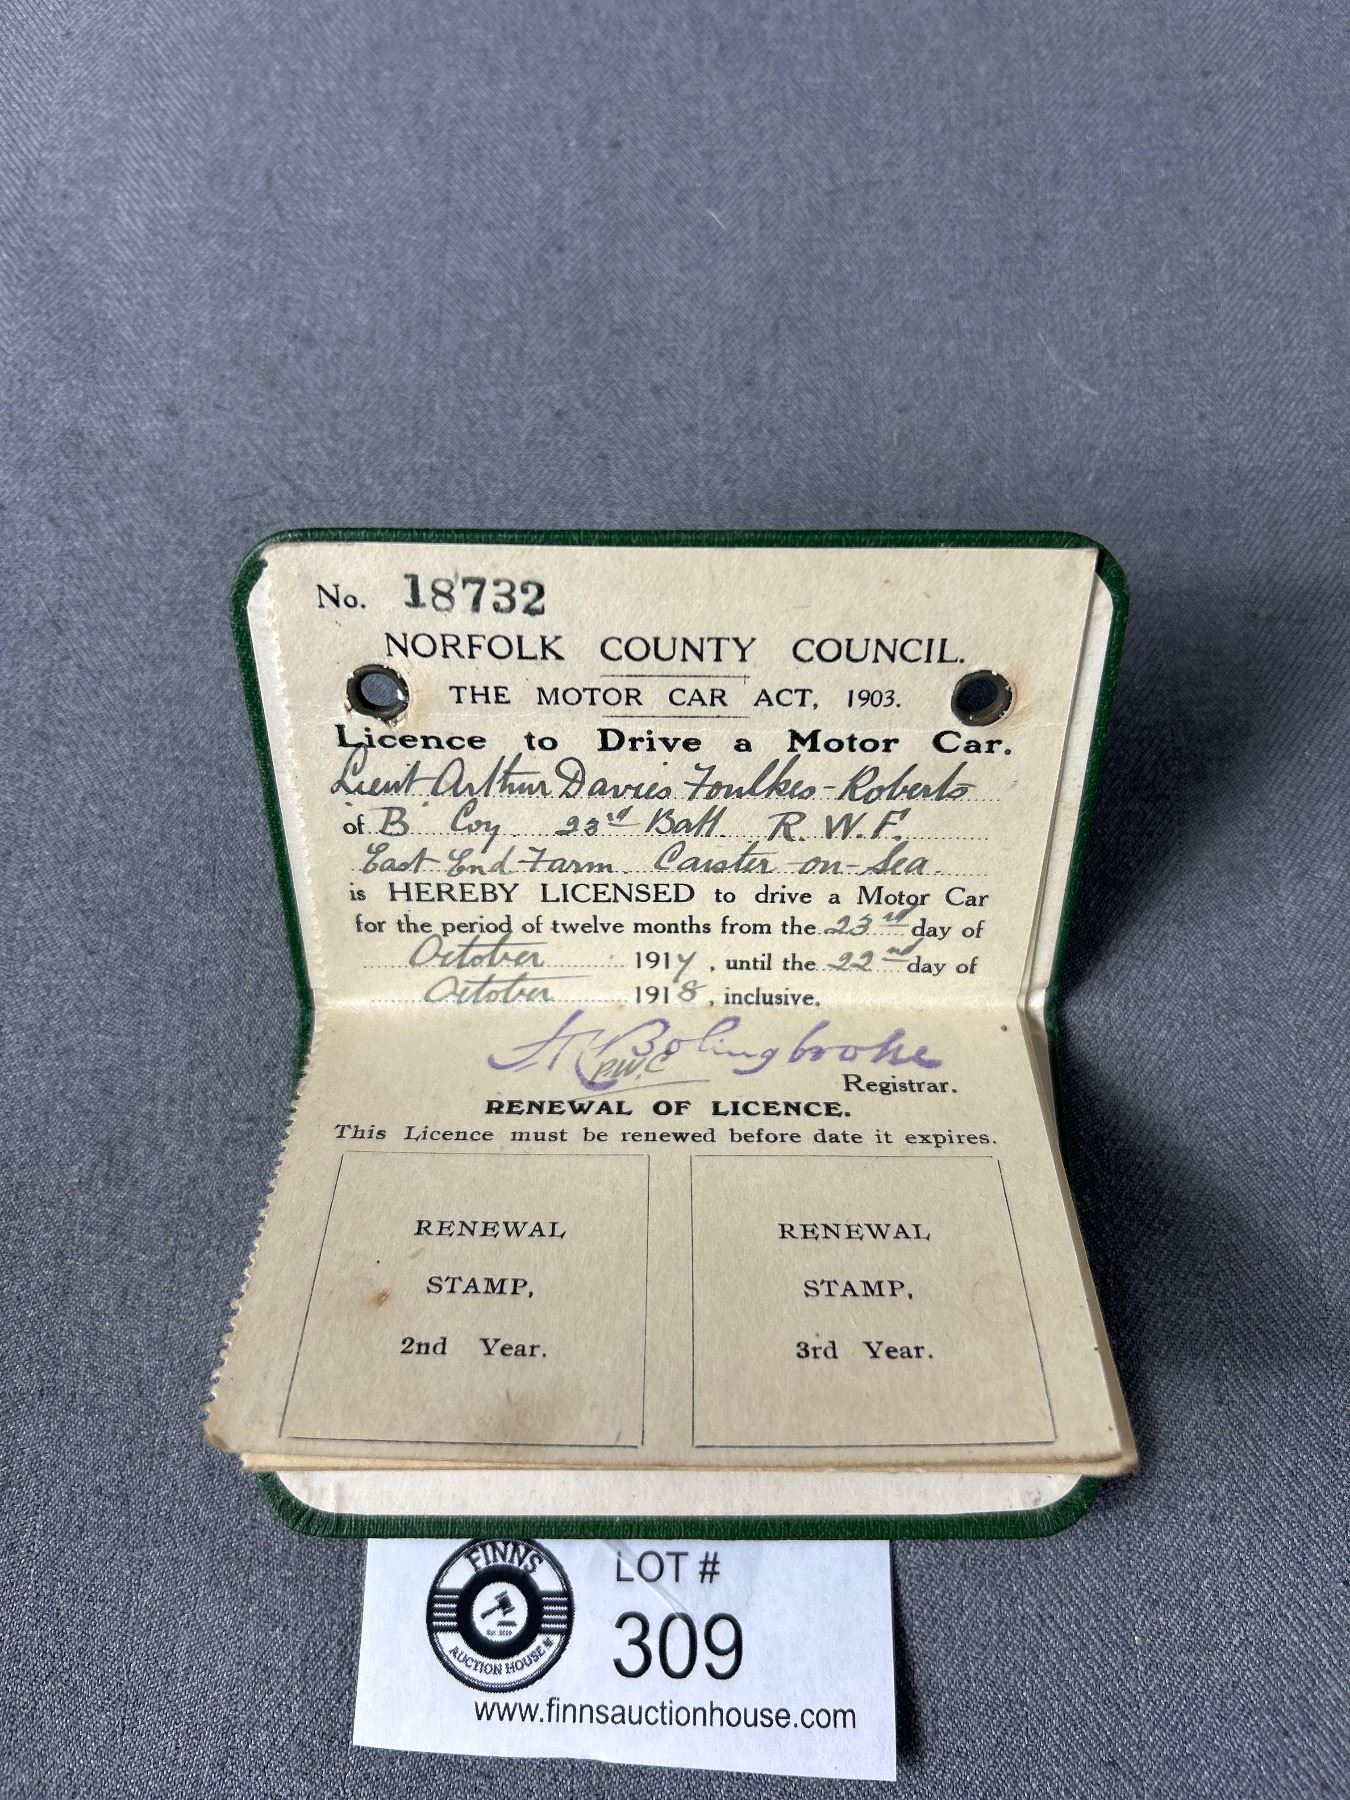 No. 18732
NORFOLK COUNTY COUNCIL.
THE MOTOR CAR ACT, 1903.
Licence to Drive a Motor Car.
Lieut Arthur Davies Foulkes-Roberts
of "B" Coy. 23rd Batt. R. W. F.
East End Farm. Caister-on-Sea.
is HEREBY LICENSED to drive a Motor Car
for the period of twelve months from the 23rd day of
October 1917, until the 22nd day of
October 1918, inclusive.
Bolingbroke
P.W.C
Registrar.
RENEWAL OF LICENCE.
This Licence must be renewed before date it expires.
RENEWAL STAMP, 2nd Year.
RENEWAL STAMP, 3rd Year.
FINNS
AUCTION HOUSE
LOT #
309
www.finnsauctionhouse.com